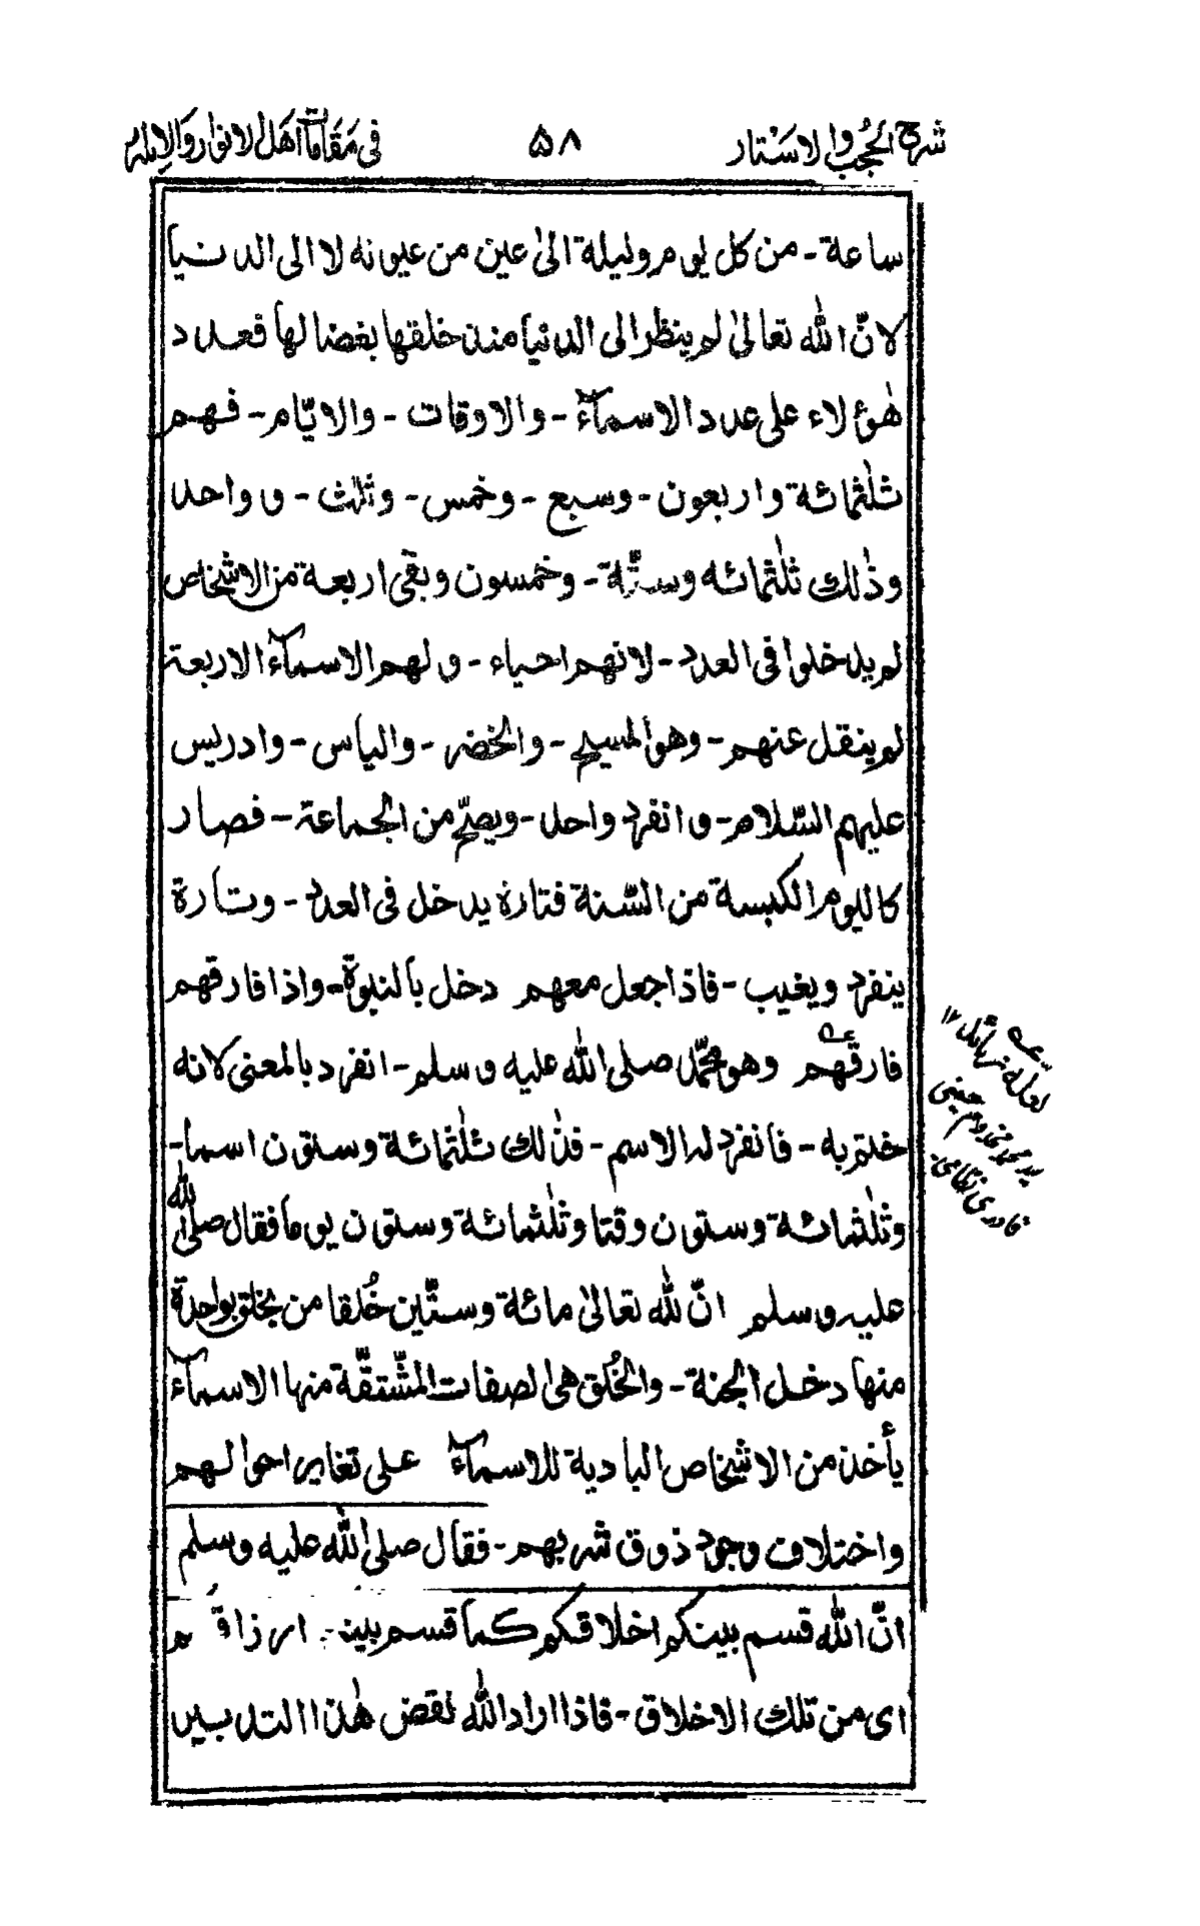 شرح الحُجب والاسْتار ۵۸ فى مَقَامات اَهَل الانوار والاسرار
ساعة - من كل يوم وليلة الىٰ عين من عيونه لا الى الدنيا
لانّ الله تعالىٰ لم ينظر الى الدنيا منذ خلقها بغضا لها فعدد
هٰؤلاء على عدد الاسمآء - والاوقات - والايّام - فهم
ثلٰثمائة واربعون - وسبع - وخمس - وثلٰث - وواحد
وذٰلك ثلٰثمائه وستّة - وخمسون وبقى اربعة من الاشخاص
لم يدخلوا فى العدد - لانهم احياء - ولهم الاسمآء الاربعة
لم ينقل عنهم - وهو المسيح - والخضر - والياس - وادريس
عليهم السّلام - وانفرد واحد - ويصحّ من الجماعة - فصار
كاليوم الكبسة من السّنة فتارة يدخل فى العدد - وتارة
ينفرد ويغيب - فاذا جعل معهم دخل بالنبوة - واذا فارقهم
فارقهم عه وهو محمّد صلى الله عليه وسلم - انفرد بالمعنى لانه
ختم به - فانفرد له الاسم - فذٰلك ثلٰثمائة وستون اسما -
وثلٰثمائة وستون وقتا وثلٰثمائة وستون يوما فقال صلى الله
عليه وسلم انّ لله تعالىٰ مائة وستّين خُلقا من يخلق بواحدة
منها دخل الجنة - والخُلق هى الصفات المشّتقّة منها الاسمآء
يأخذ من الاشخاص البادية للاسمآء على تغاير احوالهم
واختلاف وجود ذوق شربهم - فقال صلى الله عليه وسلم
انّ الله قسم بينكم اخلاقكم كما قسم بين ارزاقُم
اى من تلك الاخلاق - فاذا اراد الله نقض هٰذا التدبير
عه
لعله زائل ۱۲
سيد محمد مخدوم حسينى
قادرى نظامى